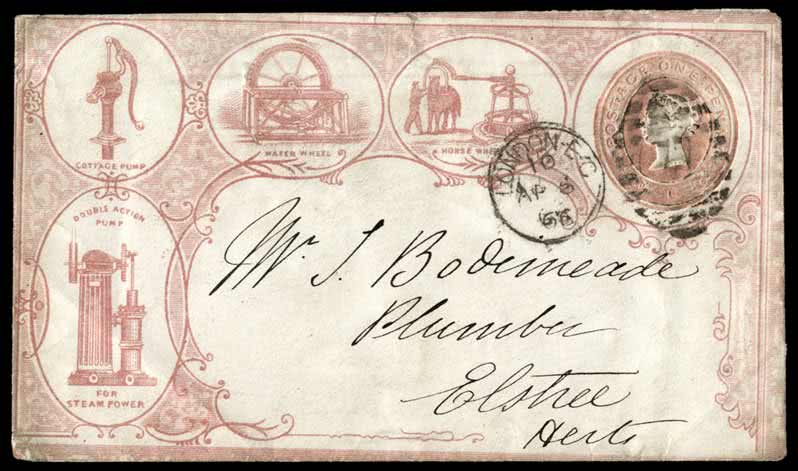 COTTAGE PUMP
WATER WHEEL
HORSE WHEEL
POSTAGE ONE PE
LONDON·E·C
10
AP 5
66
DOUBLE ACTION
PUMP
FOR
STEAM POWER
Mr. J. Bodimeade
Plumber
Elstree
Herts